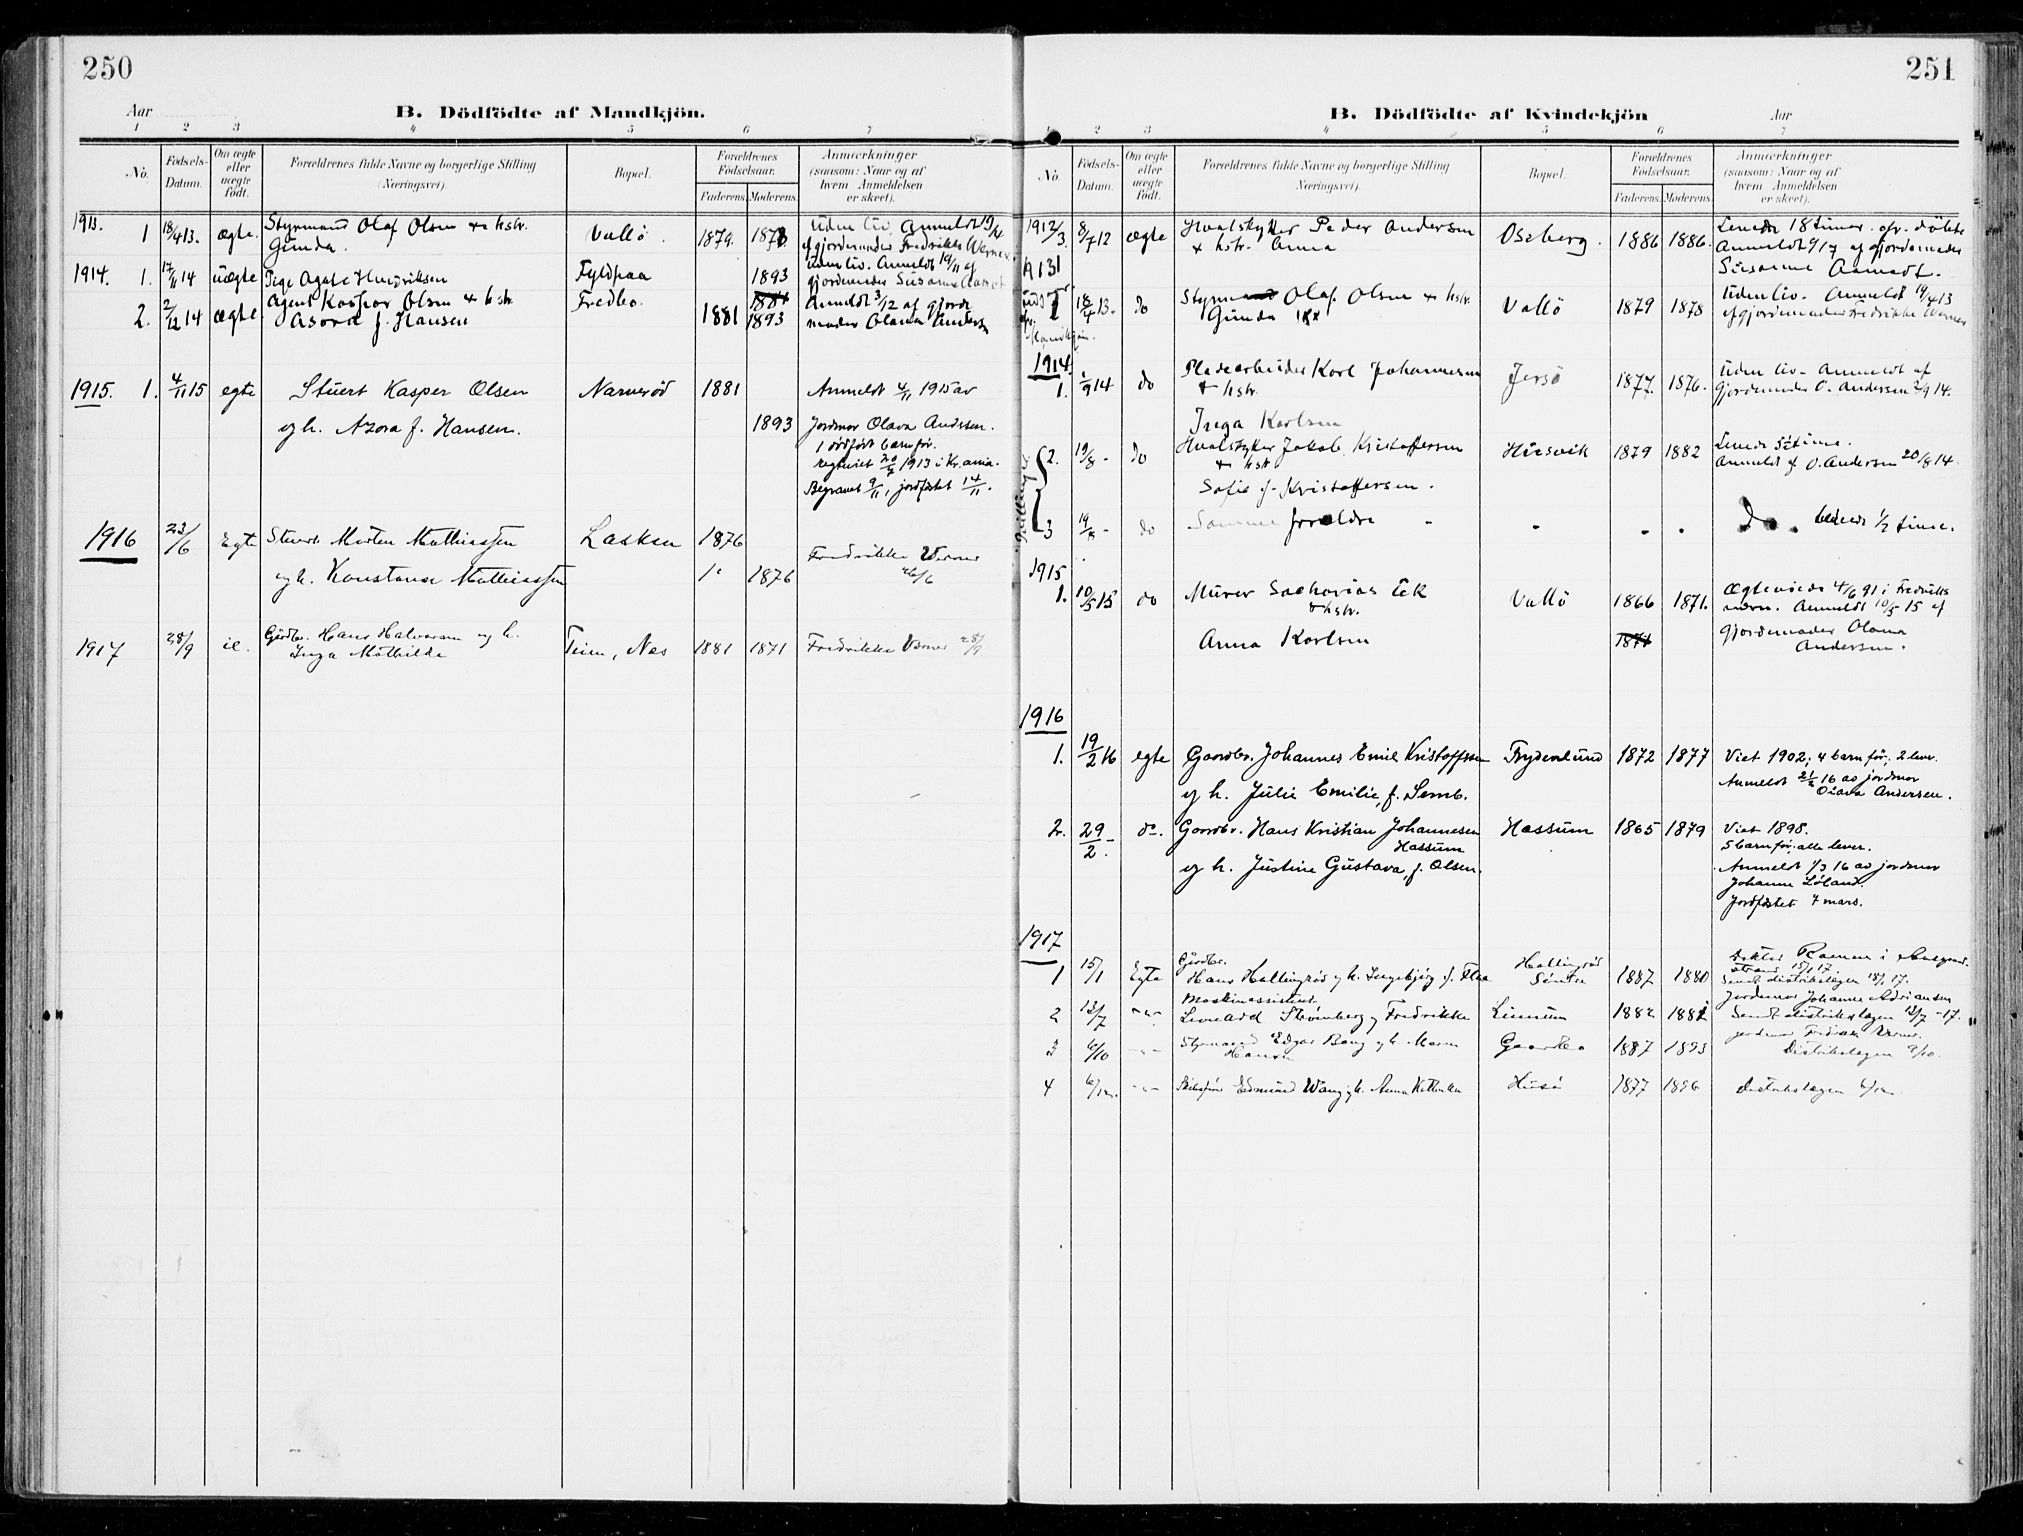 250
Aar
B. Dödfödte af Mandkjön.
1 2 3 4 5 6 7
No.
Födsels-Datum.
Om ægte eller uægte födt.
Forældrenes fulde Navne og borgerlige Stilling
(Næringsvei).
Bopæl.
Forældrenes Födselsaar.
Faderens. Moderens.
Anmærkninger
(saasom: Naar og af
hvem Anmeldelsen
er skeet).
1913. 1 18/4 13. ægte. Styrmand Olaf Olsen & hstr. Vallö. 1879. 1878. Uden liv. Anmeldt 19/4
Gunda. af gjordemoder Fredrikke Werner.
1914. 1. 17/11 14 uægte Pige Agate Hendriksen 1893 Uden liv. Anmeldt 19/11 af
gjordemoder Susanne
2. 2/12 14 ægte Agent Kaspar Olsen & hstr. Fredbo. 1881 1893 Anmeldt 3/12 af gjorde
Asora f. Hansen moder Olava Anders
1915. 1. 4/11 15 egte Stuert Kasper Olsen Narverød 1881 Anmeldt 4/11 1915 av
og h. Azora f. Hansen. 1893 Jordmor Olava Andersen.
1 dödfödt barn för.
vigtviet 20/7 1913 i Kr.ania.
Begravet 9/11, jordfæstet 14/11.
1916 23/6 Egte Stuert Morten Mathiassen Lasken 1876
Fredrikke Werner
og h. Konstanse Mathiassen 1876 26/6
1917 28/9 Gårdbr. Hans Halvorsen og h.
Inga Mathilde Teien, Nes 1881 1871 Fredrikke Verner 28/9
251
B. Dödfödte af Kvindekjön
Aar
1 2 3 4 5 6 7
No.
Födsels-Datum.
Om ægte eller uægte födt.
Forældrenes fulde Navne og borgerlige Stilling
(Næringsvei).
Bopæl.
Forældrenes Födselsaar.
Faderens. Moderens.
Anmærkninger
(saasom: Naar og af
hvem Anmeldelsen
er skeet).
1912/3. 8/7 12 ægte Hvalskytter Peder Andersen Oseberg. 1886 1886. Levede 18 timer. efr. döbte
& hstr. Anna Anmeldt 9/7 af gjordemoder
Susanne Aamodt.
18/4 13. do Styrmand Olaf Olsen & hstr. Vallö 1879 1878 Uden liv. Anmeldt 19/4 13
Gunda af gjordemoder Fredrikke Werner
1914
1. 1/9 14 do Pladearbeider Karl Johannesen Jersö 1877. 1876. Uden liv. Anmeldt af
& hstr. Gjordemoder O. Andersen 2/9 14.
Inga Karlsen
Tvillinger
2. 19/8 - do Hvalskytter Jakob Kristoffersen Husvik 1879 1882 Levede 5 time.
& hstr. Anmeldt af O. Andersen 20/8 14.
Sofie f. Kristoffersen.
3 19/8 - do Samme forældre Do. levede 1/2 time.
1915
1. 10/5 15 do Murer Sacharias Eek Vallö 1866 1871. Ægteviede 4/6 91 i Fredriks
& hstr. Anmeldt 10/5 15 af
Anna Karlsen 1871 gjordemoder Olava
Andersen.
1916
1. 19/2 16 egte Gaardbr. Johannes Emil Kristoffersen Frydenlund 1872 1877 Viet 1902; 4 barn før, 2 lever.
og h. Julie Emilie, f. Semb. Anmeldt 21/2 16 av jordmor
Olava Andersen.
2. 29/2 - do. Gaardbr. Hans Kristian Johannesen Hassum 1865 1879 Viet 1898.
Hassum 5 barn før, alle lever.
og h. Justine Gustava, f. Olsen. Anmeldt 1/3 16 av jordmor
Johanne Løland.
Jordfæstet 7 mars.
1917
1 15/1 Egte Gårdbr.
Hans Hallingrød og h. Ingebjørg f. Flaa Hallingrød Søndre 1887 1880 Doktor Ramm i Aasgaard-
strand 15/1 17
Sendt distriktslægen 18/1 17.
2 12/7 -"- Maskinassistent
Leonard Strømberg og Fredrikke Linnum 1882 1881 Jordmor Johanne Adriansen
Sendt distriktslægen 13/7 - 17.
3 6/10 -"- Styrmand Edgar Bang og h. Maren Gaarbo 1887 1893 jordmor Fredrikke Verner.
Hansen Distriktslægen 9/10.
4 6/12. -"- Skibsfører Edmund Wang og h. Anna Kathinka Husö 1877 1896 Distriktslægen 6/12